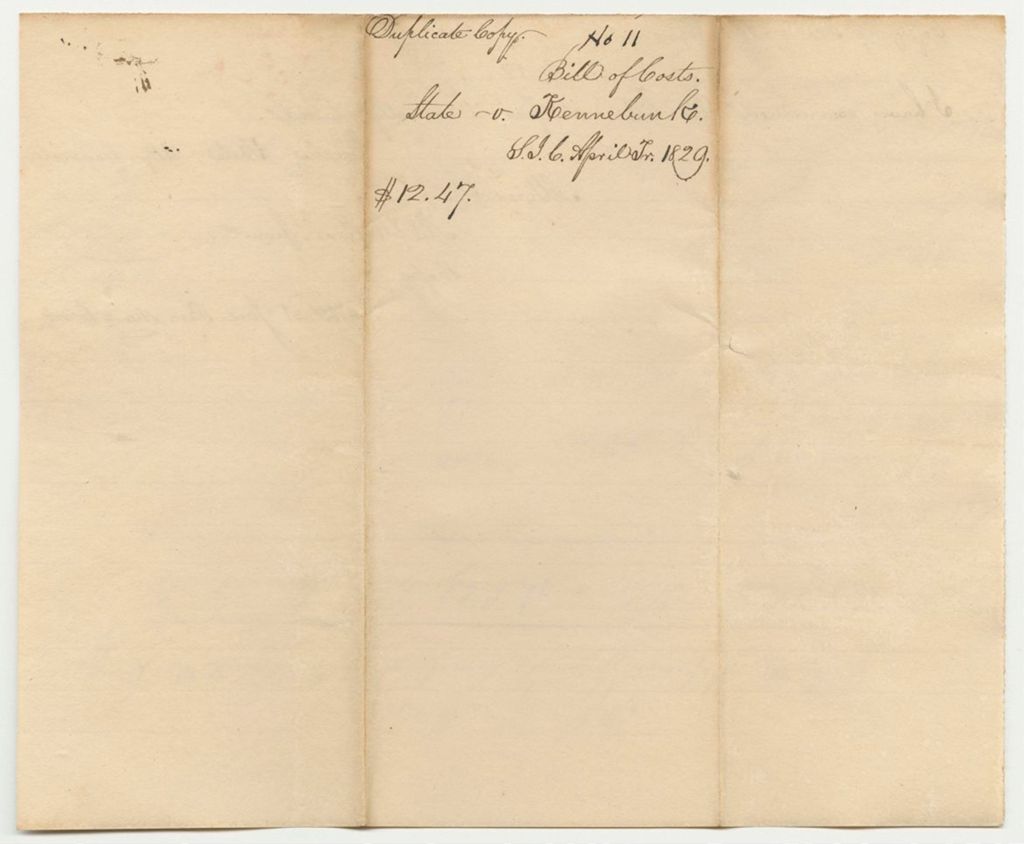 Duplicate Copy.
No 11
Bill of Costs.
State -v. Kennebunk.
S.J.C. April Tr. 1829.
$12.47.